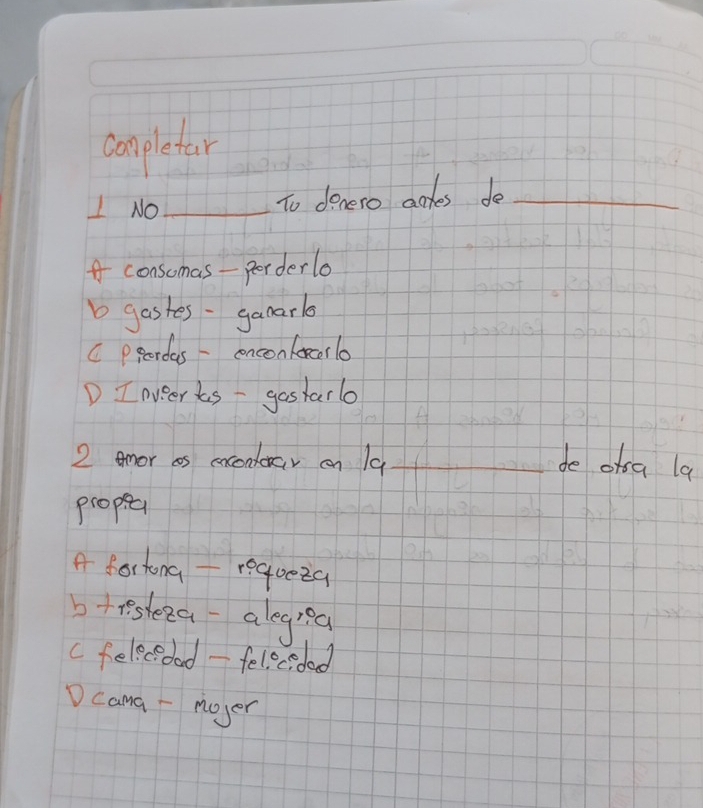 Completar
1 NO ________ Tu dinero antes de ________
A consumas - perderlo
b gastes - ganarlo
C pierdas - encontrarlo
D Inviertas - gastarlo
2 Amor es encontrar en la ________ de otra la
propia
A fortuna - riqueza
b tristeza - alegria
C felicidad - felicidad
D cama - mujer